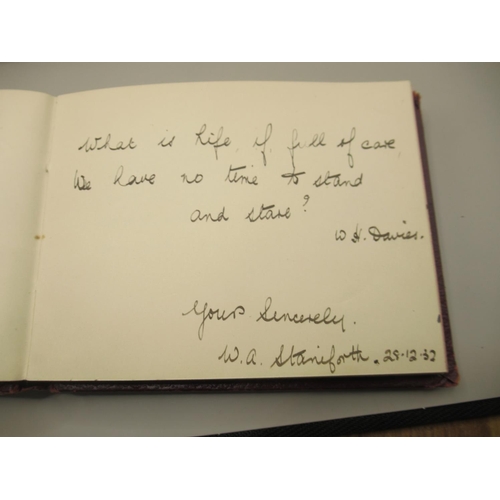 What is life if full of care
We have no time to stand
and stare?
W. H. Davies.
Yours Sincerely.
W. A. Staniforth. 29.12.32